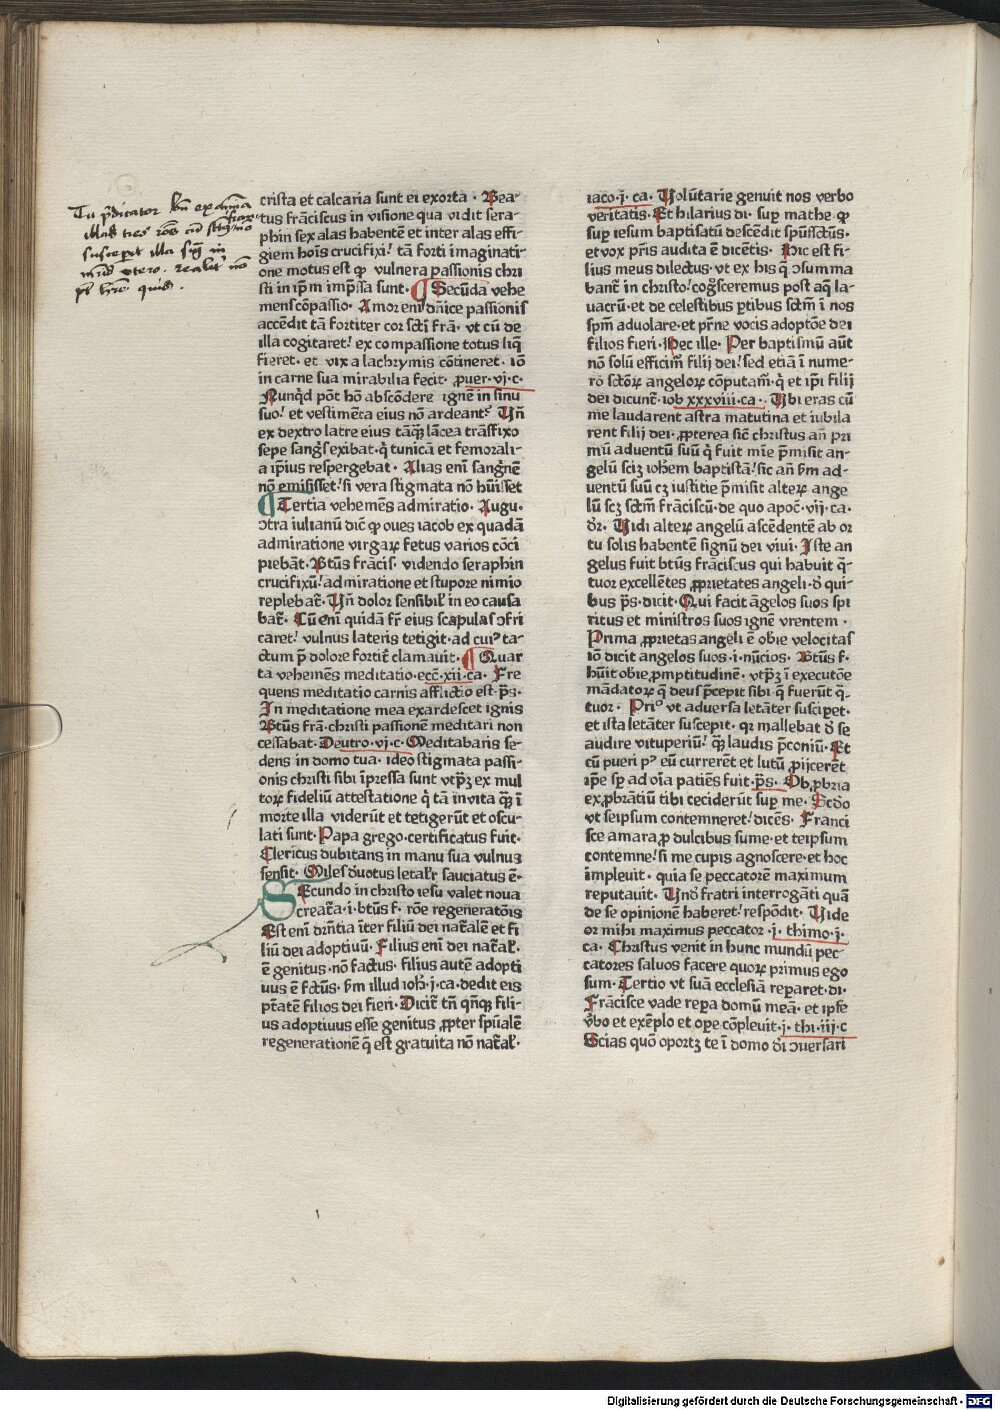 crista et calcaria sunt ei exorta · Bea-
tus frãciscus in visione qua vidit sera-
phin sex alas habentẽ et inter alas effi-
giem hoĩs crucifixi! tã forti imaginati-
one motus est ꝙ vulnera passionis chri
sti in ip̃m imp̃ssa sunt. ¶ Secũda vehe
mens cõpassio. Amor eni dñice passionis
accẽdit tã fortiter cor sctĩ frã· vt cũ de
illa cogitaret! ex compassione totus liq̃
fieret· et vix a lachrymis cõtineret· iõ
in carne sua mirabilia fecit· ꝓuer·vj·c·
Nunq̃d põt hõ abscõdere ignẽ in sinu
suo! et vestimẽta eius nõ ardeant? Vñ
ex dextro latre eius tãq̃ lãcea trãsfixo
sepe sang̃s exibat· q̃ tunicã et femorali-
a ip̃ius respergebat· Alias eni sang̃nẽ
nõ emisisset! si vera stigmata nõ hũisset
¶ Tertia vehemẽs admiratio· Augu·
ↄtra iulianũ dic̃ ꝙ oues iacob ex quadã
admiratione virgaꝝ fetus varios cõci
piebãt· Btũs frãcis· videndo seraphin
crucifixũ! admiratione et stupore nimio
replebat̃· Vñ dolor sensibil̃ in eo causa
bat̃· Cũ eni quidã fr̃ eius scapulas ↄfri
caret! vulnus lateris tetigit· ad cuiꝰ ta-
ctum p̃ dolore fortit̃ clamauit· ¶ Quar
ta vehemẽs meditatio· ecc̃·xii·ca· Fre
quens meditatio carnis afflictio est· p̃s·
In meditatione mea exardescet ignis
Btũs frã· christi passionẽ meditari non
cessabat· Deutro·vj·c· Meditabaris se-
dens in domo tua· ideo stigmata passi-
onis christi sibi ĩpressa sunt vtpꝫ ex mul
toꝝ fideliũ attestatione q̃ tã in vita q̃ ĩ
morte illa viderũt et tetigerũt et oscu-
lati sunt· Papa grego·certificatus fuit·
Clericus dubitans in manu sua vulnus
sensit· Miles d̃uotus letalr̃ sauciatus ẽ·
SEcundo in christo iesu valet noua
creat̃a·i·btũs f· rõe regeneratõis
Est eni drñtia ĩter filiũ dei nat̃alẽ et fi
liũ dei adoptiuũ· Filius eni dei nat̃al̃·
ẽ genitus·nõ factus· filius autẽ adopti
uus ẽ fctũs· s̃m illud ioh̃·j·ca·dedit eis
p̃tatẽ filios dei fieri· Dicit̃ tñ q̃nq̃ fili-
us adoptiuus esse genitus ꝓpter sp̃ualẽ
regenerationẽ q̃ est gratuita nõ nat̃al̃·
iaco·j·ca· Volũtarie genuit nos verbo
veritatis· Et hilarius di· suꝑ mathe ꝙ
suꝑ iesum baptisatũ descẽdit sp̃ũssctũs·
et vox pr̃is audita ẽ dicẽtis· Hic est fi-
lius meus dilectus· vt ex his q̃ ↄsumma
bant̃ in christo! cog̃sceremus post aq̃ la-
uacrũ· et de celestibus ꝑtibus sctm̃ ĩ nos
spm̃ aduolare·et pr̃ne vocis adoptõe dei
filios fieri· Hec ille· Per baptismũ aũt
nõ solũ efficim̃ filij dei! sed etiã ĩ nume-
rõ sctõꝝ angeloꝝ cõputam̃· q̃ et ip̃i filij
dei dicunt̃·iob xxxviii·ca·. Vbi eras cũ
me laudarent astra matutina et iubila
rent filij dei· ꝓpterea sic̃ christus añ pri
mũ aduentũ suũ q̃ fuit mĩe p̃misit an-
gelũ sciꝫ ioh̃em baptistã! sic añ s̃m ad-
uentũ suũ cꝫ iustitie p̃misit alteꝝ ange
lũ scꝫ sctm̃ frãciscũ·de quo apoc̃·vij·ca·
d̃r· Vidi alteꝝ angelũ ascẽdentẽ ab or
tu solis habentẽ signũ dei viui· Iste an
gelus fuit btũs frãciscus qui habuit q̃-
tuor excellẽtes ꝓprietates angeli·d̃ qui-
bus p̃s·dicit· Qui facit ãgelos suos spi
ritus et ministros suos ignẽ vrentem·
Prima ꝓprietas angeli ẽ obie velocitas
iõ dicit angelos suos·i·nũcios· Btũs f·
hũit obie ꝓmptitudinẽ· vtpꝫ ĩ executõe
mãdatoꝝ q̃ deus p̃cepit sibi q̃ fuerũt q̃-
tuor· Priꝰ vt aduersa letãter susciꝑet·
et ista letãter suscepit· qꝛ mallebat d̃ se
audire vituperiũ! q̃ laudis p̃coniũ· Et
cũ pueri pꝰ eũ currerẽt et lutũ ꝓijcerẽt
ip̃e sp̃ ad oĩa patiẽs fuit·p̃s· Obꝓbria
exꝓbrãtiũ tibi ceciderũt suꝑ me· Scd̃o
vt seipsum contemneret! dicẽs· Franci
sce amara ꝓ dulcibus sume·et teipsum
contemne! si me cupis agnoscere·et hoc
impleuit· quia se peccatorẽ maximum
reputauit· Vnd̃ fratri interrogãti quã
de se opinionẽ haberet! respõdit· Vide
or mihi maximus peccator·j·thimo·j·
ca· Christus venit in hunc mundũ pec-
catores saluos facere quoꝝ primus ego
sum· Tertio vt suã ecclesiã reꝑaret·di·
Frãcisce vade reꝑa domũ meã· et ipse
v̇bo et exẽplo et oꝑe cõpleuit·j·thi·iij·c
Scias quõ oportꝫ te ĩ domo d̃i ↄuersari
Digitalisierung gefördert durch die Deutsche Forschungsgemeinschaft - DFG